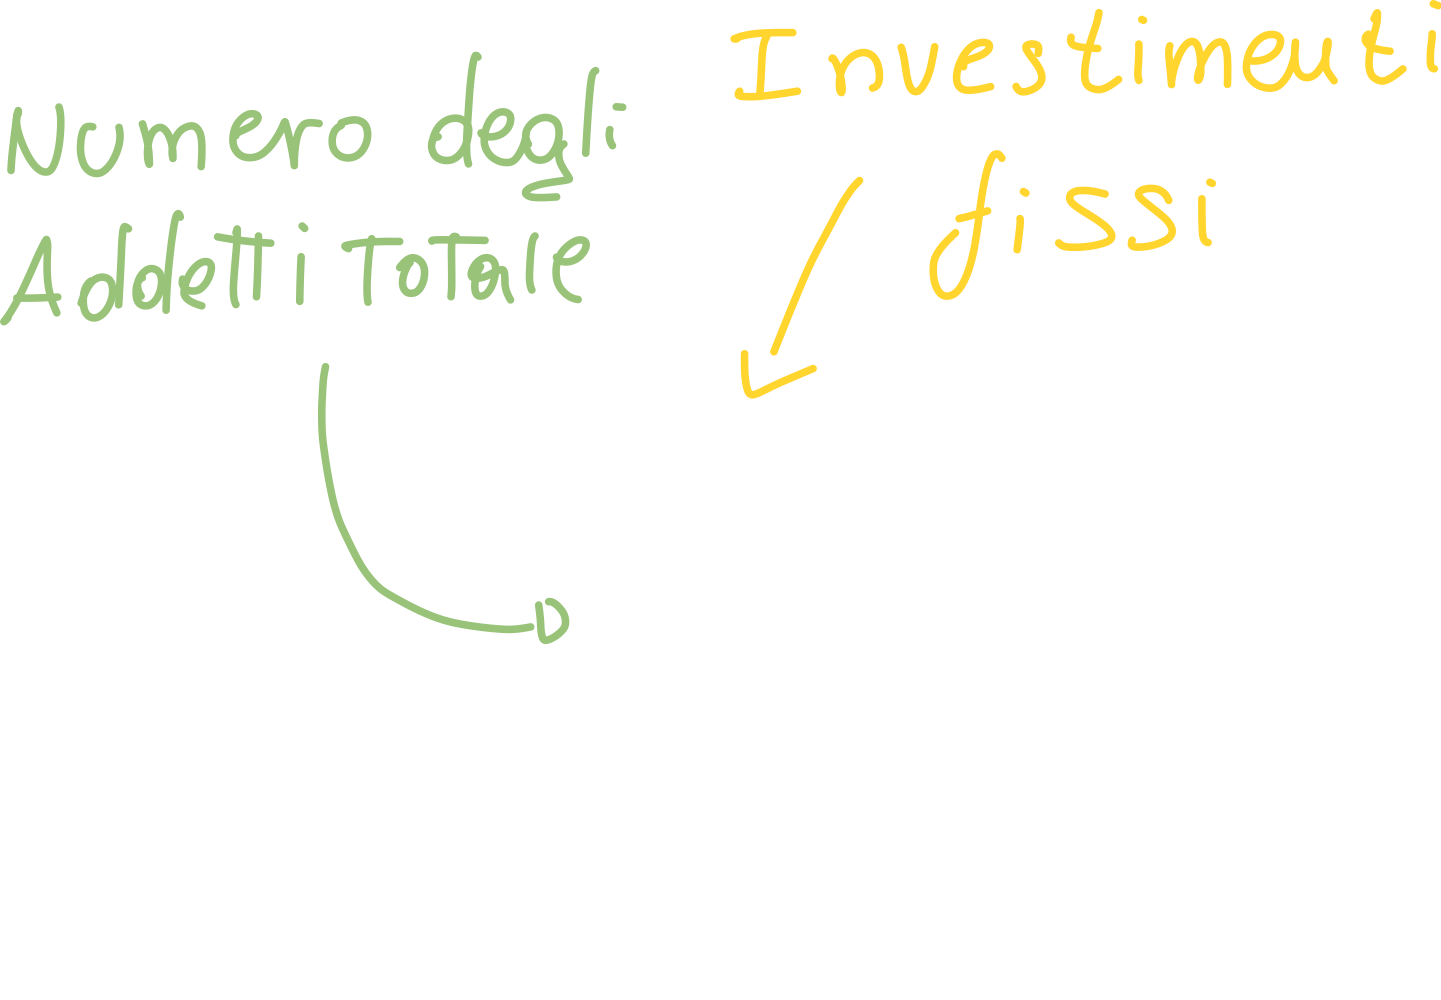 Numero degli
Addetti Totale
Investimenti
fissi